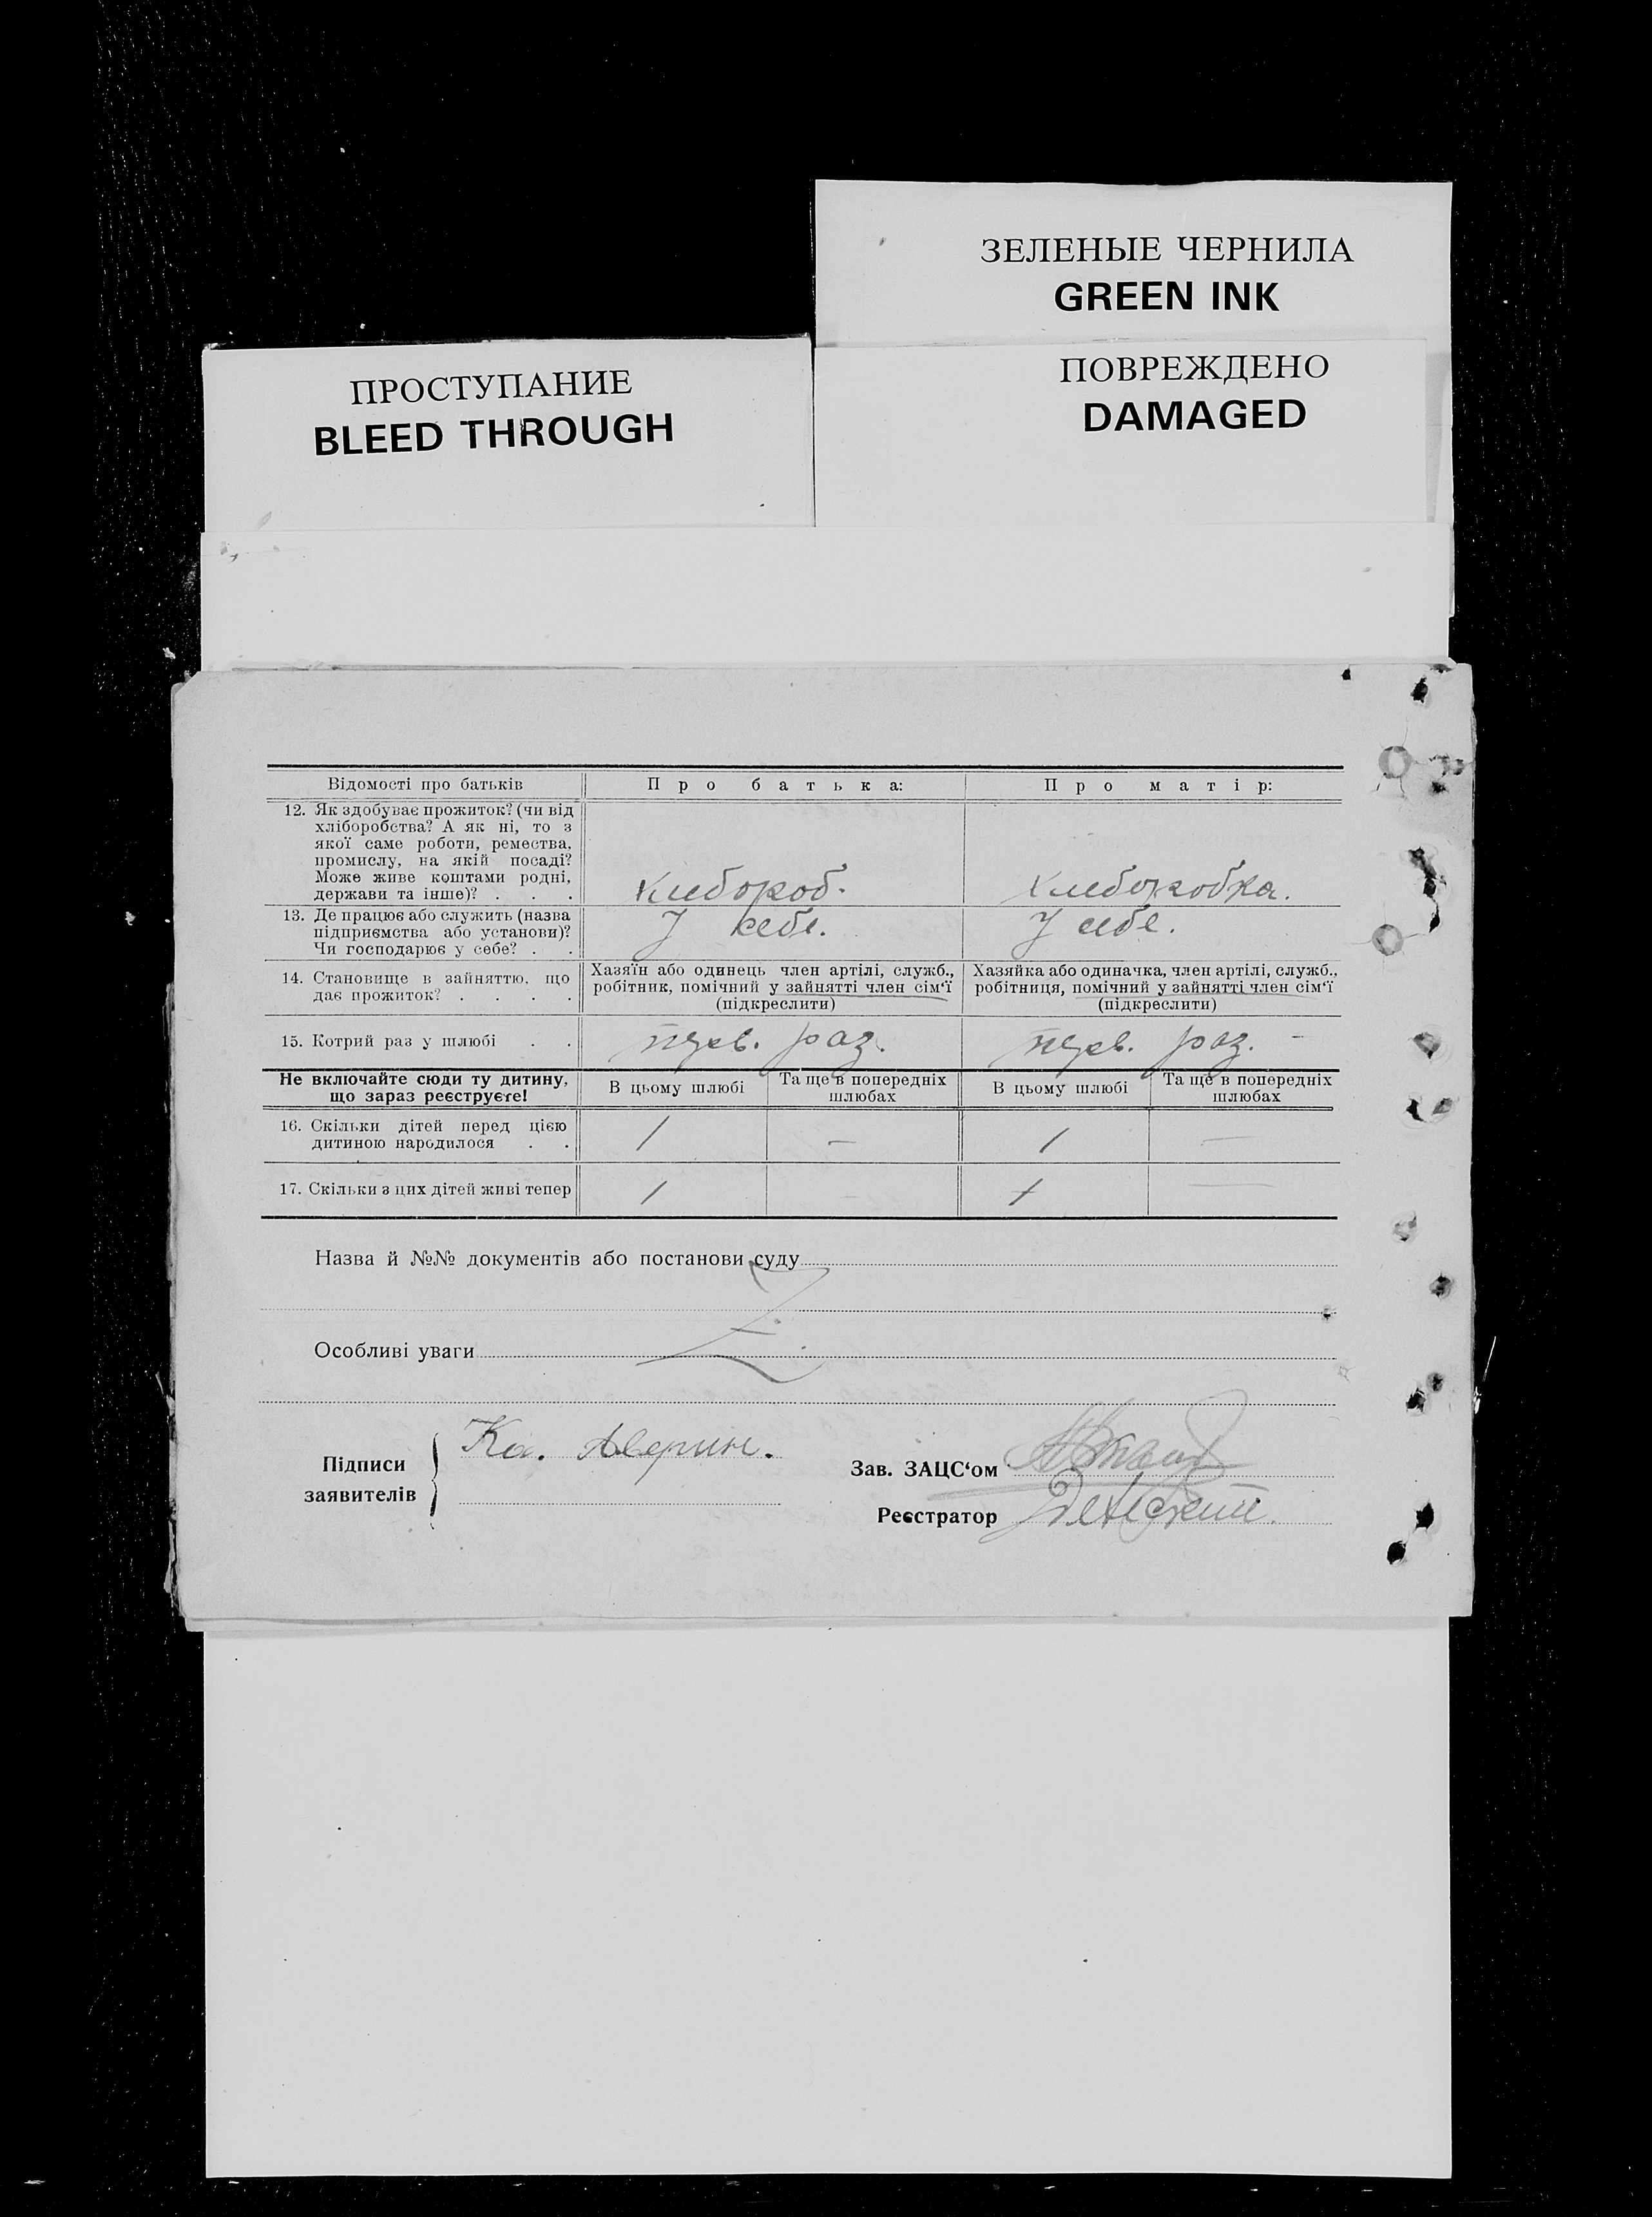 ЗЕЛЕНЫЕ ЧЕРНИЛА
GREEN INK
ПРОСТУПАНИЕ
BLEED THROUGH
ПОВРЕЖДЕНО
DAMAGED
Відомості про батьків Про батька: Про матір:
12. Як здобуває прожиток? (чи від
хліборобства? А як ні, то з
якої саме роботи, ремества,
промислу, на якій посаді?
Може живе коштами родні,
держави та інше)? . . .
хлебороб. хлеборобка.
13. Де працює або служить (назва
підприємства або установи)?
Чи господарює у себе? . .
У себе. У себе.
14. Становище в зайняттю, що
дає прожиток? . . . .
Хазяїн або одинець член артілі, служб.,
робітник, помічний у зайнятті член сім'ї
(підкреслити)
Хазяйка або одиначка, член артілі, служб.,
робітниця, помічний у зайнятті член сім'ї
(підкреслити)
15. Котрий раз у шлюбі . . перв. раз. перв. раз. -
Не включайте сюди ту дитину,
що зараз реєструєте!
В цьому шлюбі Та ще в попередніх
шлюбах
В цьому шлюбі Та ще в попередніх
шлюбах
16. Скільки дітей перед цією
дитиною народилося . .
1 — 1 —
17. Скільки з цих дітей живі тепер 1 — 1 —
Назва й №№ документів або постанови суду
Особливі уваги
Підписи
заявителів
Ка. Аверин.
Зав. ЗАЦС'ом
Реєстратор